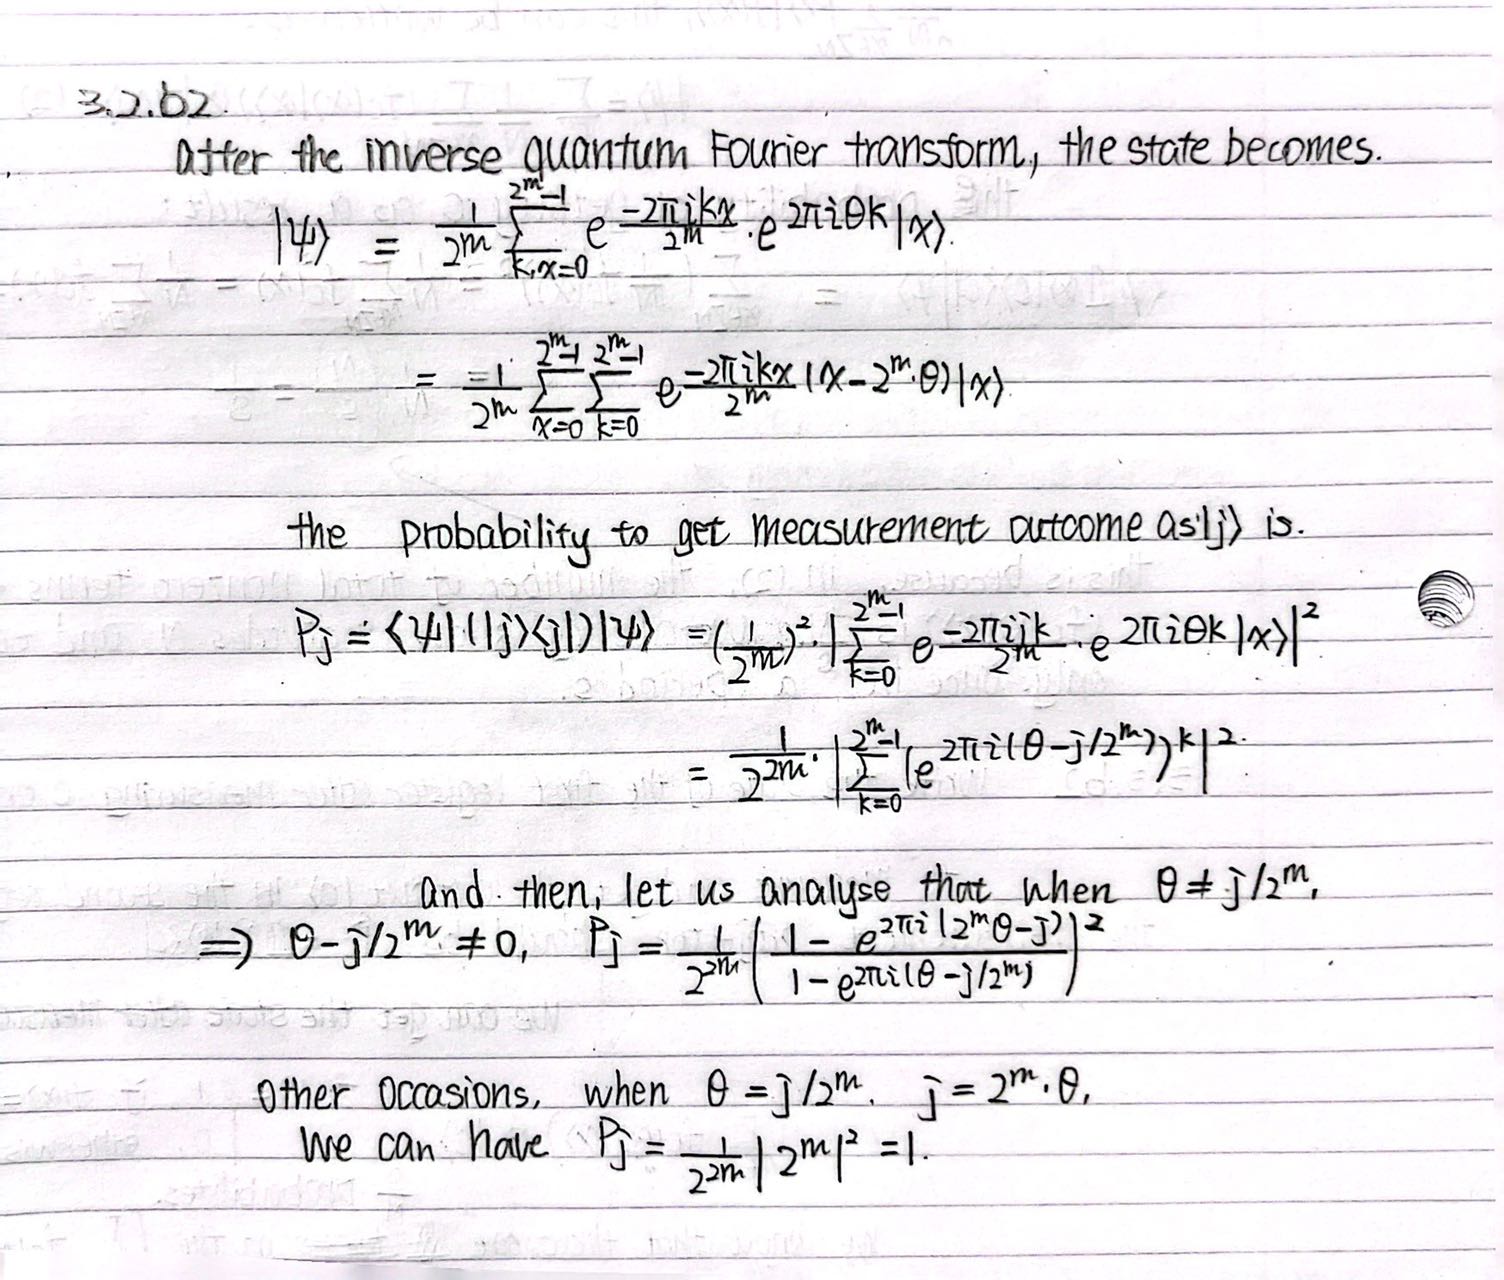 3.2.b2.
after the inverse quantum Fourier transform, the state becomes.
|ψ⟩ = 1/2^m ∑_{k,x=0}^{2^m-1} e^{-2πikx/2^m} · e^{2πiθk} |x⟩.
= 1/2^m ∑_{x=0}^{2^m-1} ∑_{k=0}^{2^m-1} e^{-2πikx/2^m (x-2^m·θ)} |x⟩
the probability to get measurement outcome as |j⟩ is.
Pj = ⟨ψ|(|j⟩⟨j|)|ψ⟩ = (1/2^m)^2 · |∑_{k=0}^{2^m-1} e^{-2πijk/2^m} · e^{2πiθk} |x⟩|^2
= 1/2^{2m} · |∑_{k=0}^{2^m-1} (e^{2πi(θ-j/2^m)})^k|^2.
and then, let us analyse that when θ ≠ j/2^m,
⟹ θ-j/2^m ≠ 0, Pj = 1/2^{2m} (1-e^{2πi(2^mθ-j)} / 1-e^{2πi(θ-j/2^m)})^2
Other occasions, when θ = j/2^m. j = 2^m·θ,
we can have Pj = 1/2^{2m} |2^m|^2 = 1.